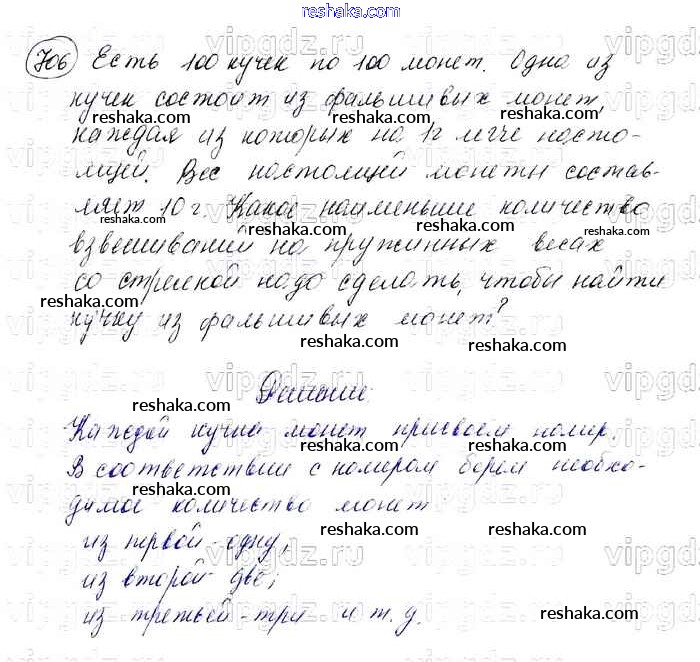 706 Есть 100 кучек по 100 монет. Одна из
кучек состоит из фальшивых монет,
каждая из которых на 1г легче насто-
ящей. Вес настоящей монеты состав-
ляет 10 г. Какое наименьшее количество
взвешиваний на пружинных весах
со стрелкой надо сделать, чтобы найти
кучку из фальшивых монет?
Решение:
Каждой кучке монет присвоем номер.
В соответствии с номером берем необхо-
димое количество монет
из первой - одну,
из второй - две;
из третьей - три и т. д.
reshaka.com
vipgdz.ru